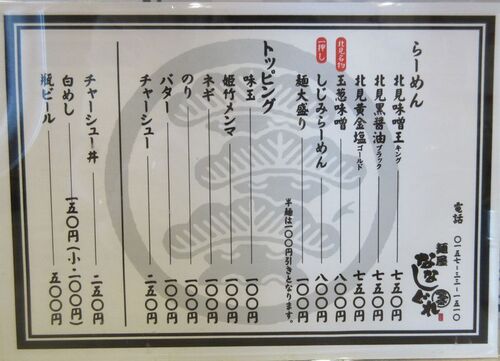 らーめん
北見味噌王キング 七五〇円
北見黒醤油ブラック 七五〇円
北見黄金塩ゴールド 七五〇円
北見名物
玉葱味噌 八〇〇円
一押し
しじみらーめん 八〇〇円
麺大盛り 一〇〇円
半麺は一〇〇円引きとなります。
トッピング
味玉 一〇〇円
姫竹メンマ 一〇〇円
ネギ 一〇〇円
のり 一〇〇円
バター 一〇〇円
チャーシュー 二五〇円
チャーシュー丼 二五〇円
白めし 一五〇円(小・一〇〇円)
瓶ビール 五〇〇円
電話 〇一五七-三三-一五一〇
麺屋
ななしぐれ